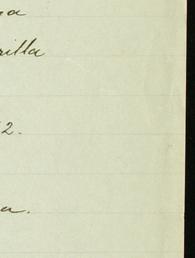 na
rilla
2.
a.